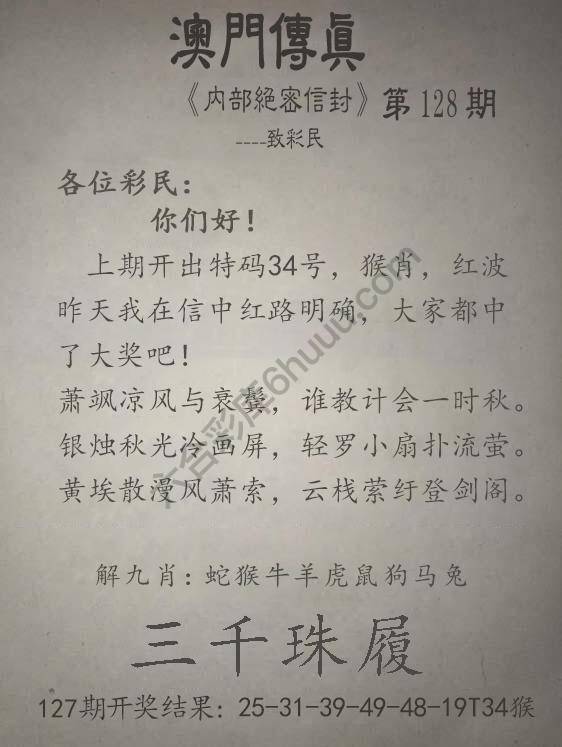 澳門傳眞
《内部絕密信封》第128期
----致彩民
各位彩民：
你们好！
上期开出特码34号，猴肖，红波
昨天我在信中红路明确，大家都中
了大奖吧！
萧飒凉风与衰鬓，谁教计会一时秋。
银烛秋光冷画屏，轻罗小扇扑流萤。
黄埃散漫风萧索，云栈萦纡登剑阁。
解九肖：蛇猴牛羊虎鼠狗马兔
三千珠履
127期开奖结果：25-31-39-49-48-19T34猴
六合彩库6huuu.com